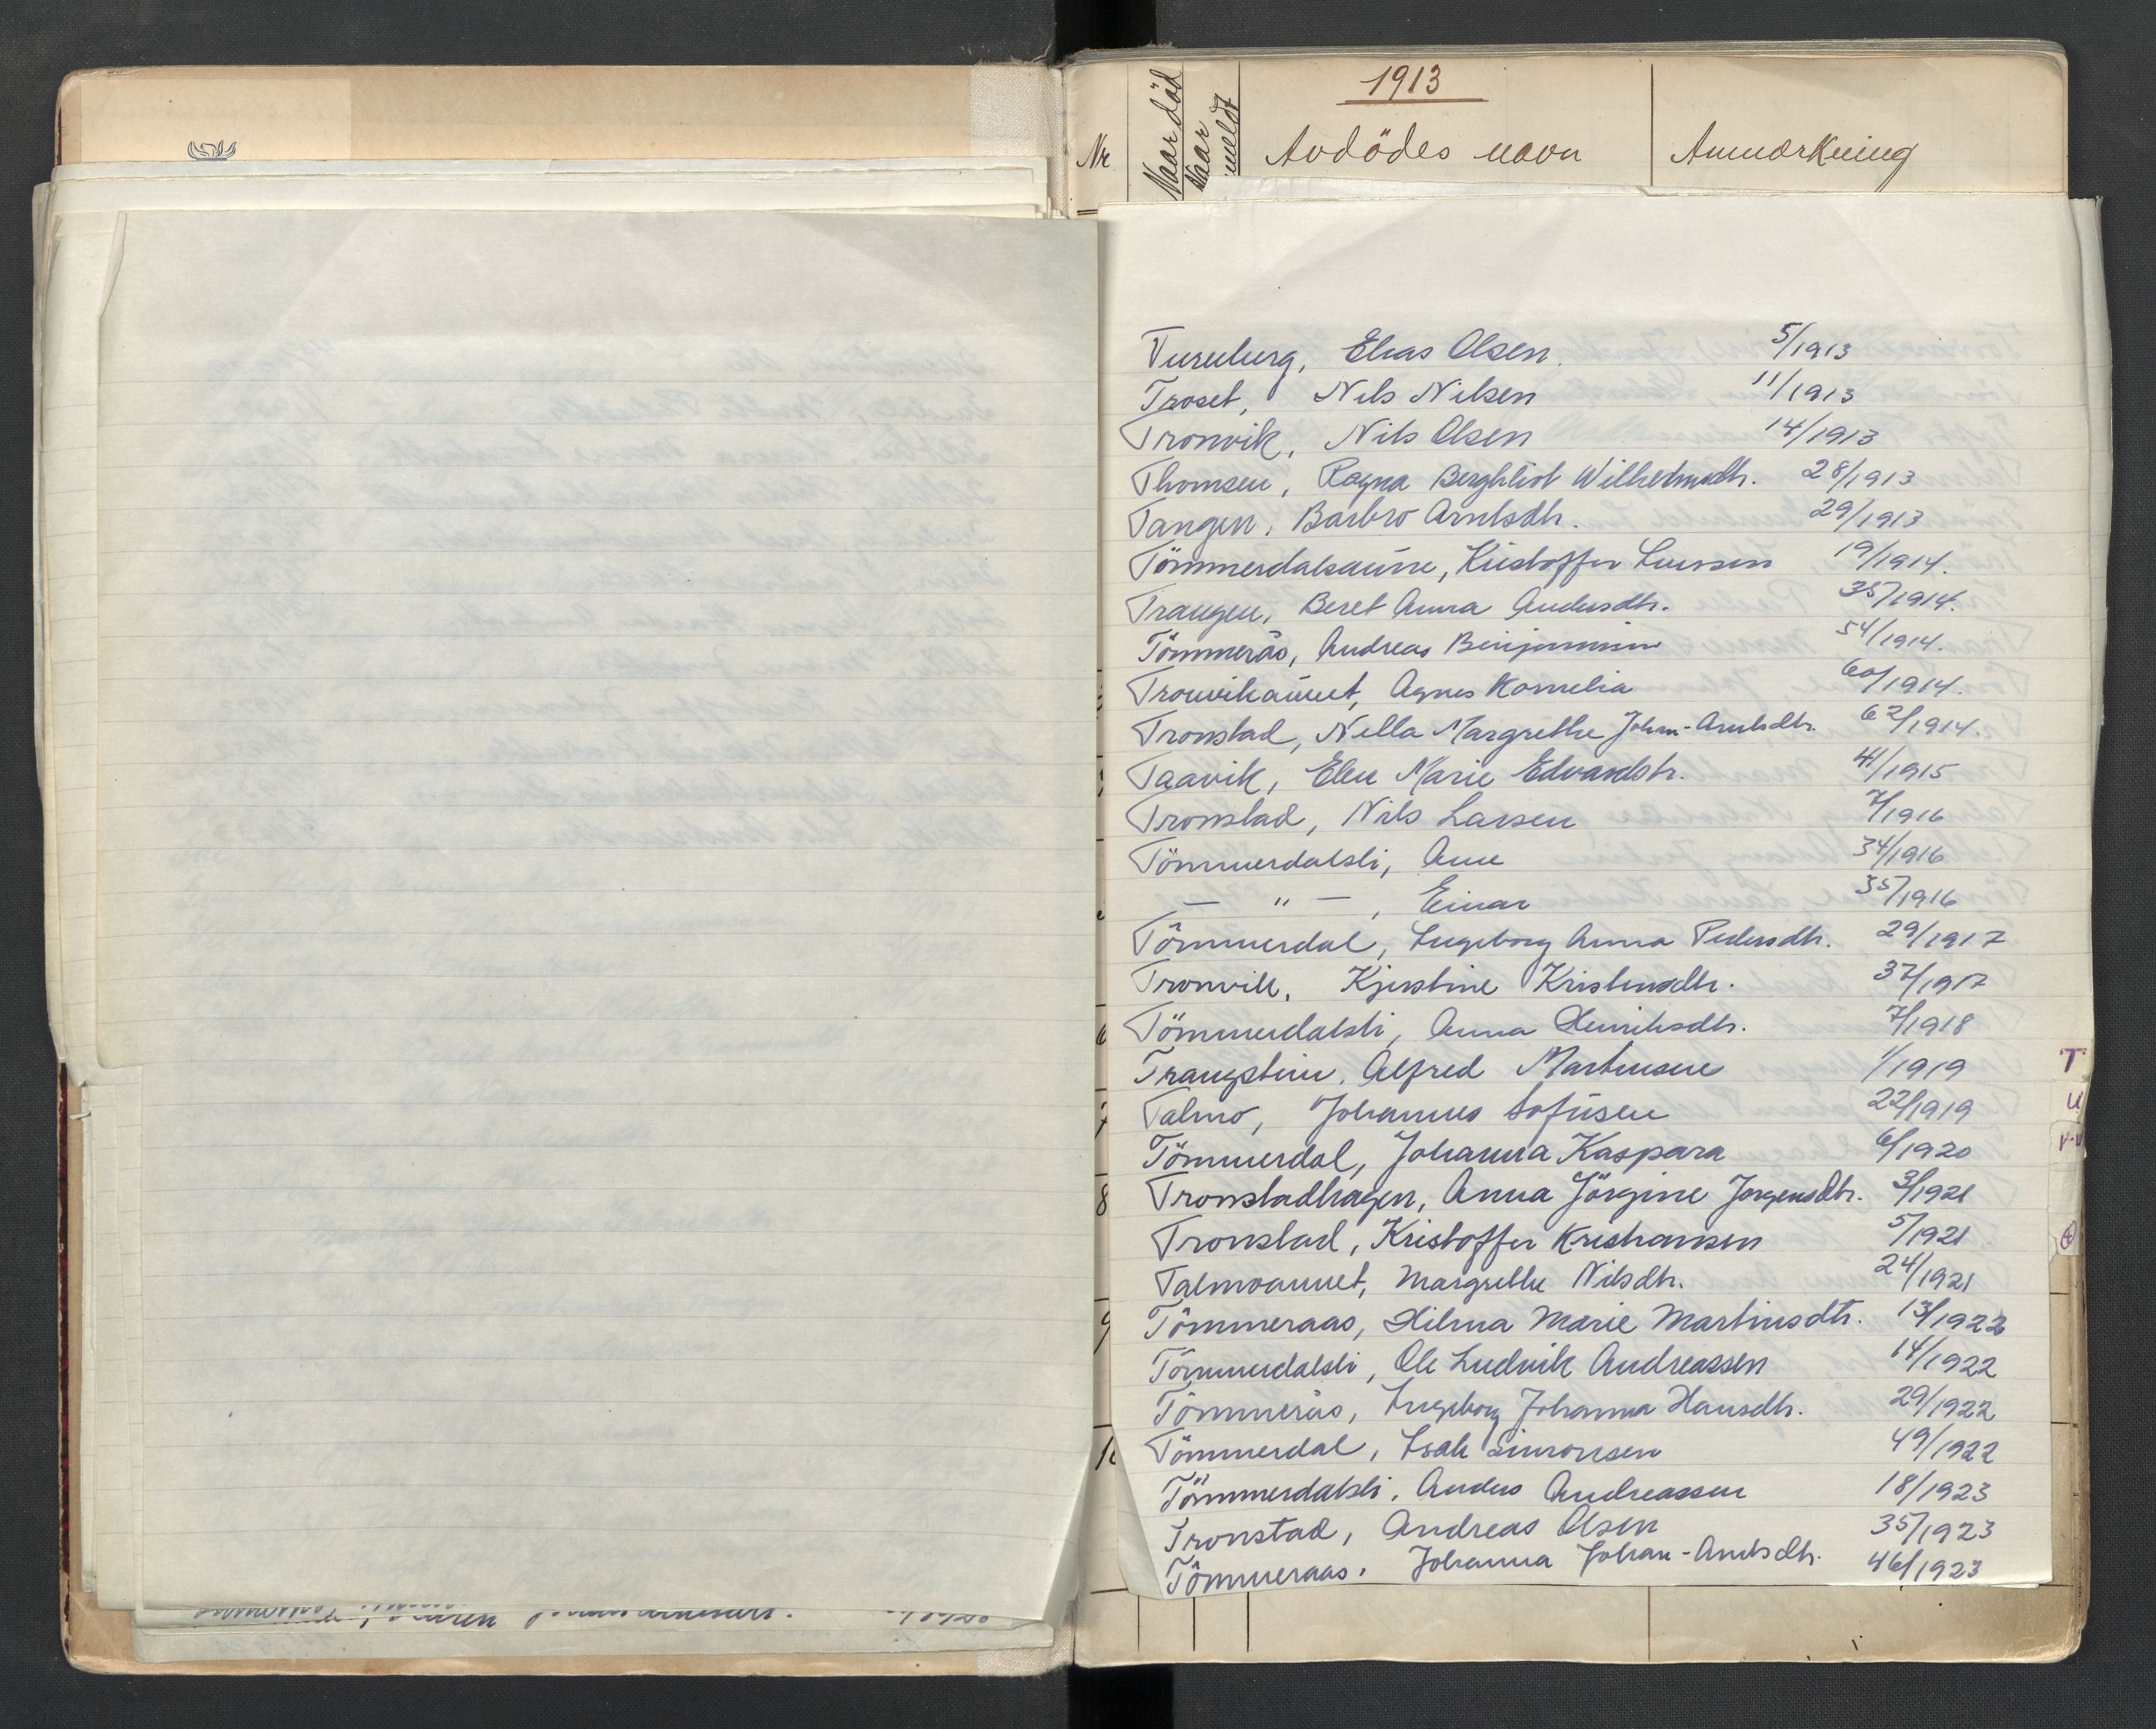 1913
Nr
Naar död
Naar meldt
Avdödes navn
Anmærkning
Tureberg, Elias Olsen. 5/1913
Troset, Nils Nilsen 11/1913
Tronvik, Nils Olsen 14/1913
Thomsen, Ragna Berghliot Wilhelmsdtr. 28/1913
Tangen, Barbro Arntsdtr. 29/1913
Tömmerdalsaune, Kristoffer Larssen 19/1914.
Trangen, Beret Anna Andersdtr. 35/1914.
Tömmerås, Andreas Binjaminsen 54/1914.
Tronvikaunet, Agnes Kornelia 60/1914.
Tronstad, Nella Margrethe Johan-Arntsdtr. 62/1914.
Taavik, Elen Marie Edvardstr. 41/1915
Tronstad, Nils Larsen 7/1916
Tömmerdalsli, Ane 34/1916
— " —, Einar 35/1916
Tömmerdal, Ingeborg Anna Pedersdtr. 29/1917
Tronvik, Kjerstine Kristensdtr. 37/1917
Tömmerdalsli, Anna Henriksdtr. 7/1918
Trangstein, Alfred Martinsen 1/1919
Talmo, Johannes Sofusen 22/1919
Tömmerdal, Johanna Kaspara 6/1920
Tronstadhagen, Anna Jörgine Jorgensdtr. 3/1921
Tronstad, Kristoffer Kristiansen 5/1921
Talmoaunet, Margrethe Nilsdtr. 24/1921
Tömmeraas, Hilma Marie Martinsdtr. 13/1922
Tömmerdalsli, Ole Ludvik Andreassen 14/1922
Tömmerås, Ingeborg Johanna Hansdtr. 29/1922
Tömmerdal, Isak Simonsen 49/1922
Tömmerdalsli, Anders Andreassen 18/1923
Tronstad, Andreas Olsen 35/1923
Tömmeraas, Johanna Johan-Arntsdtr. 46/1923
6
7
8
9
T
U